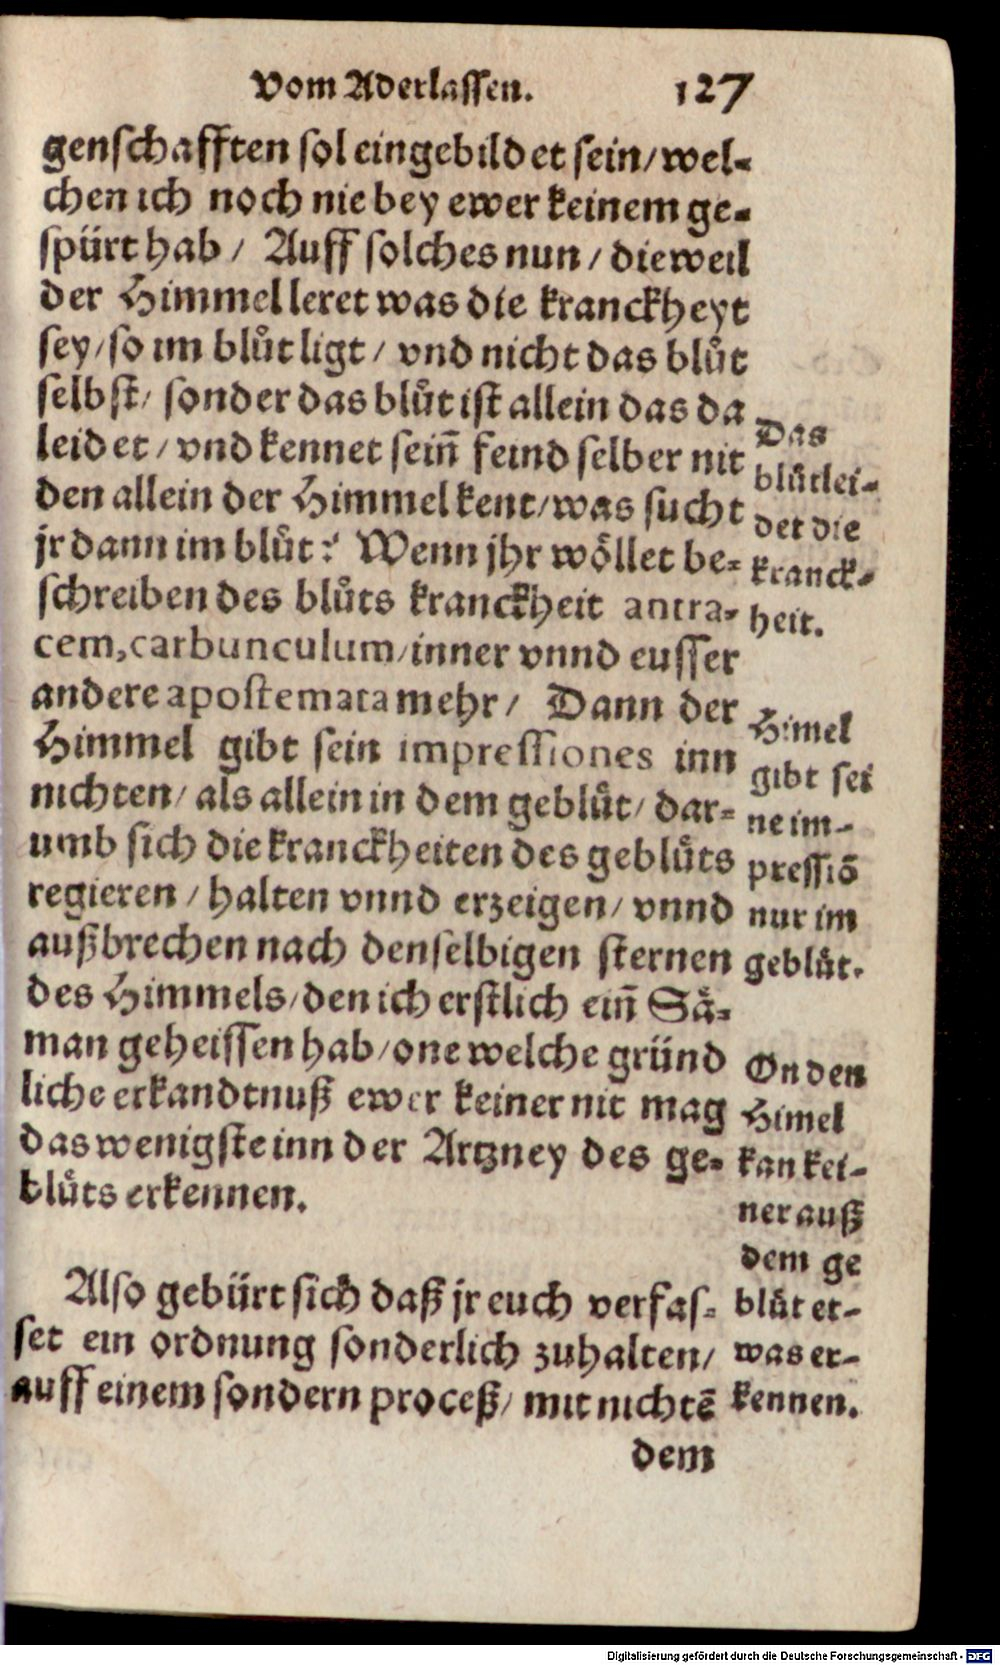 Vom Aderlassen. 127
genschafften sol eingebildet sein/ wel-
chen ich noch nie bey ewer keinem ge-
spürt hab/ Auff solches nun/ dieweil
der Himmel leret was die kranckheyt
sey/ so im blůt ligt/ vnd nicht das blůt
selbst/ sonder das blůt ist allein das da
leidet/ vnd kennet sein̄ feind selber nit
den allein der Himmel kent/ was sucht
jr dann im blůt? Wenn jhr wöllet be-
schreiben des blůts kranckheit antra-
cem, carbunculum/ inner vnnd eusser
andere apostemata mehr/ Dann der
Himmel gibt sein impressiones inn
nichten/ als allein in dem geblůt/ dar-
umb sich die kranckheiten des geblůts
regieren/ halten vnnd erzeigen/ vnnd
außbrechen nach denselbigen sternen
des Himmels/ den ich erstlich ein̄ Sä-
man geheissen hab/ one welche gründ
liche erkandtnuß ewer keiner nit mag
das wenigste inn der Artzney des ge-
blůts erkennen.
Also gebürt sich daß jr euch verfas-
set ein ordnung sonderlich zuhalten/
auff einem sondern proceß/ mit nichtē
dem
Das
blůt lei-
det die
kranck-
heit.
Himel
gibt sei
ne im-
pressiō
nur im
geblůt.
On den
Himel
kan kei-
ner auß
dem ge
blůt et-
was er-
kennen.
Digitalisierung gefördert durch die Deutsche Forschungsgemeinschaft - DFG